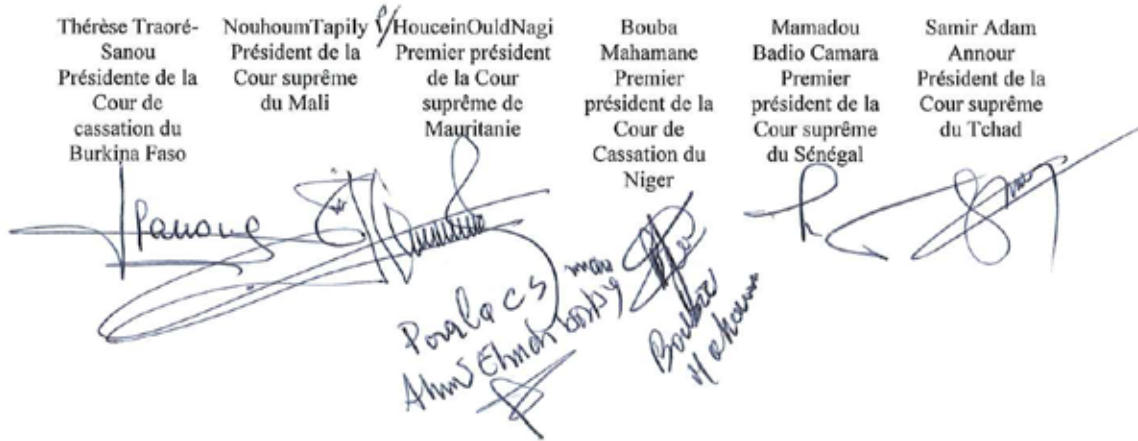 Thérèse Traoré-
Sanou
Présidente de la
Cour de
cassation du
Burkina Faso
NouhoumTapily
Président de la
Cour suprême
du Mali
P/HouceinOuldNagi
Premier président
de la Cour
suprême de
Mauritanie
Bouba
Mahamane
Premier
président de la
Cour de
Cassation du
Niger
Mamadou
Badio Camara
Premier
président de la
Cour suprême
du Sénégal
Samir Adam
Annour
Président de la
Cour suprême
du Tchad
Pour la CS